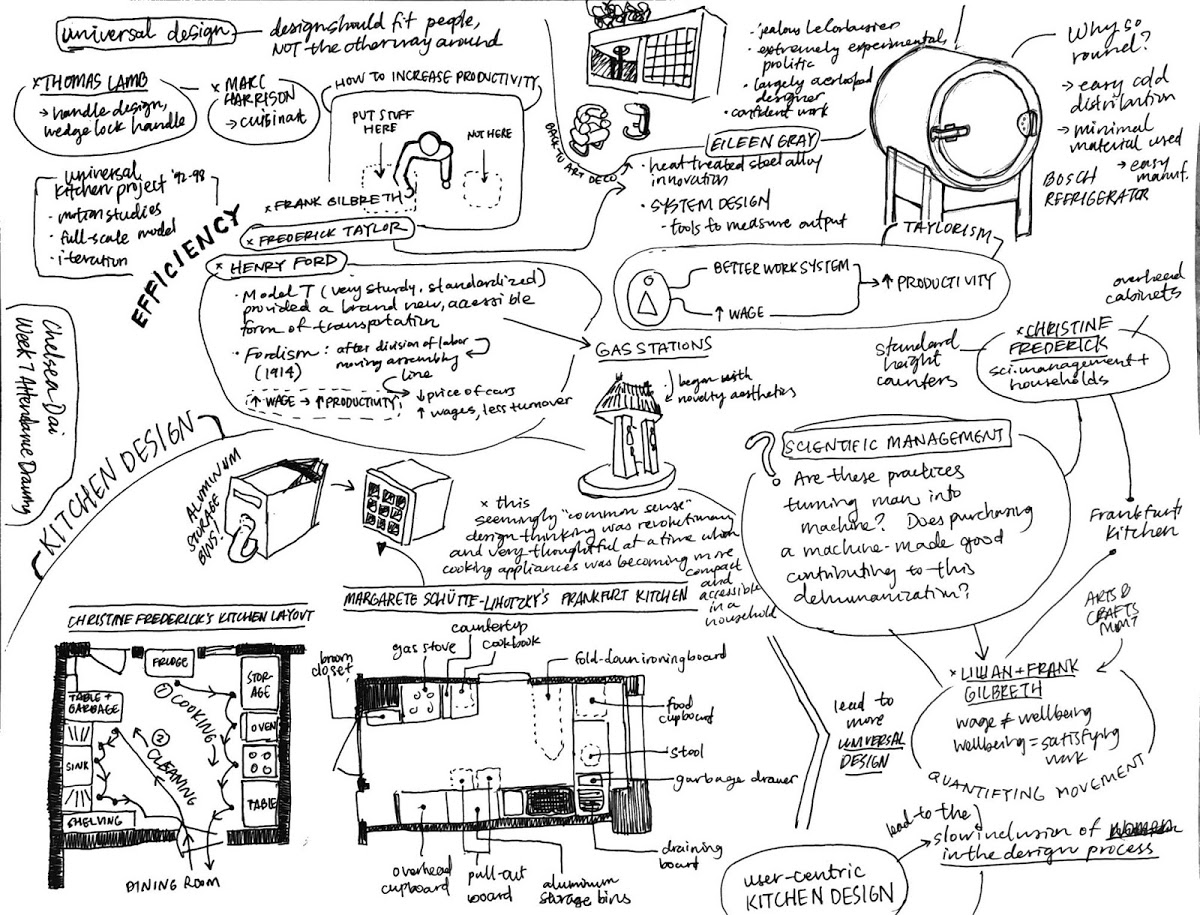 universal design
design should fit people,
NOT the other way around
× THOMAS LAMB
→ handle design,
wedge lock handle
× MARC
HARRISON
→ cuisinart
HOW TO INCREASE PRODUCTIVITY
PUT STUFF
HERE
NOT HERE
× FRANK GILBRETH
universal
kitchen project '92-98
· motion studies
· full-scale model
· iteration
EFFICIENCY
× FREDERICK TAYLOR
× HENRY FORD
· Model T (very sturdy, standardized)
provided a brand new, accessible
form of transportation
· Fordism : after division of labor
(1914) moving assembly
line
↑ WAGE → ↑ PRODUCTIVITY
↓ price of cars
↑ wages, less turnover
BACK TO ART DECO
· jealous Le Corbusier
· extremely experimental,
prolific
· largely
designer
· confident work
EILEEN GRAY
· heat treated steel alloy
innovation
· SYSTEM DESIGN
· tools to measure output
TAYLORISM
BETTER WORK SYSTEM
↑ WAGE
→ ↑ PRODUCTIVITY
Why so
round?
→ easy cold
distribution
→ minimal
material used
→ easy
manuf.
BOSCH
REFRIGERATOR
GAS STATIONS
began with
novelty aesthetics
overhead
cabinets
standard
height
counters
× CHRISTINE
FREDERICK
sci. management +
households
Frankfurt
Kitchen
Chelsea Dai
Week 7 Attendance Drawing
KITCHEN DESIGN
ALUMINUM
STORAGE
BINS!
× this
seemingly "common sense"
design thinking was revolutionary
and very thoughtful at a time when
cooking appliances was becoming more
compact
and
accessible
in a
household
? SCIENTIFIC MANAGEMENT
Are these practices
turning man into
machine? Does purchasing
a machine-made good
contributing to this
dehumanization?
ARTS &
CRAFTS
MVMT
× LILIAN + FRANK
GILBRETH
wage ≠ wellbeing
wellbeing = satisfying
work
QUANTIFYING MOVEMENT
lead to
more
UNIVERSAL
DESIGN
user-centric
KITCHEN DESIGN
lead to the
slow inclusion of women
in the design process
CHRISTINE FREDERICK'S KITCHEN LAYOUT
FRIDGE
STOR-
AGE
TABLE +
GARBAGE
① COOKING
OVEN
② CLEANING
SINK
TABLE
SHELVING
DINING ROOM
MARGARETE SCHÜTTE-LIHOTZKY'S FRANKFURT KITCHEN
broom
closet
gas stove
countertop
cookbook
fold-down ironing board
food
cupboard
stool
garbage drawer
draining
board
overhead
cupboard
pull-out
board
aluminum
storage bins